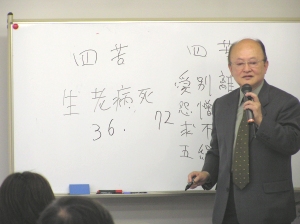 四苦
生老病死
36.
72
四苦
愛別離
怨憎
求不
五